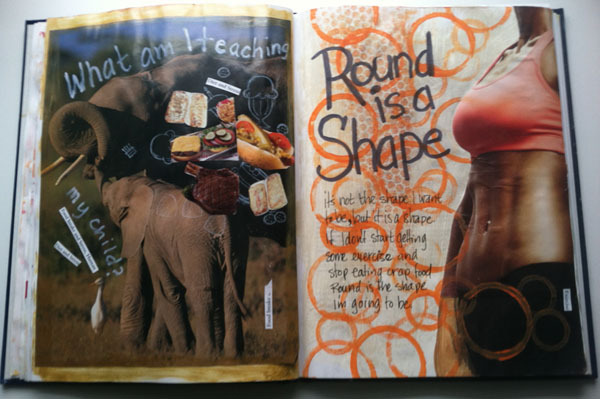 What am I teaching
my child?
Round
is a
Shape
it's not the shape I want
to be, but it is a shape
If I don't start getting
some exercise and
stop eating crap food
Round is the shape
im going to be